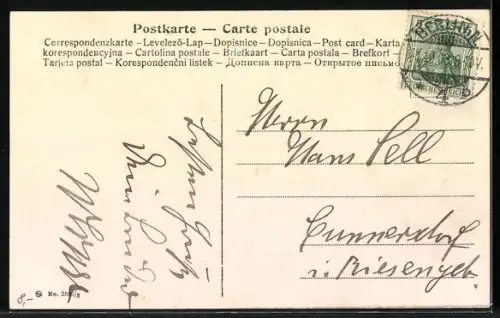 Postkarte — Carte postale
Correspondenzkarte – Levelező-Lap – Dopisnice – Dopisnica – Post card – Karta
korespondencyjna – Cartolina postale – Briefkaart – Carta postala – Brefkort
Tarjeta postal – Korespondenční listek – Дописна карта – Открытое письмо
Herrn
Hans Sell
Cunnersdorf
i. Riesengeb
Besten Gruß
Dein Bruder
No. 258
8,-